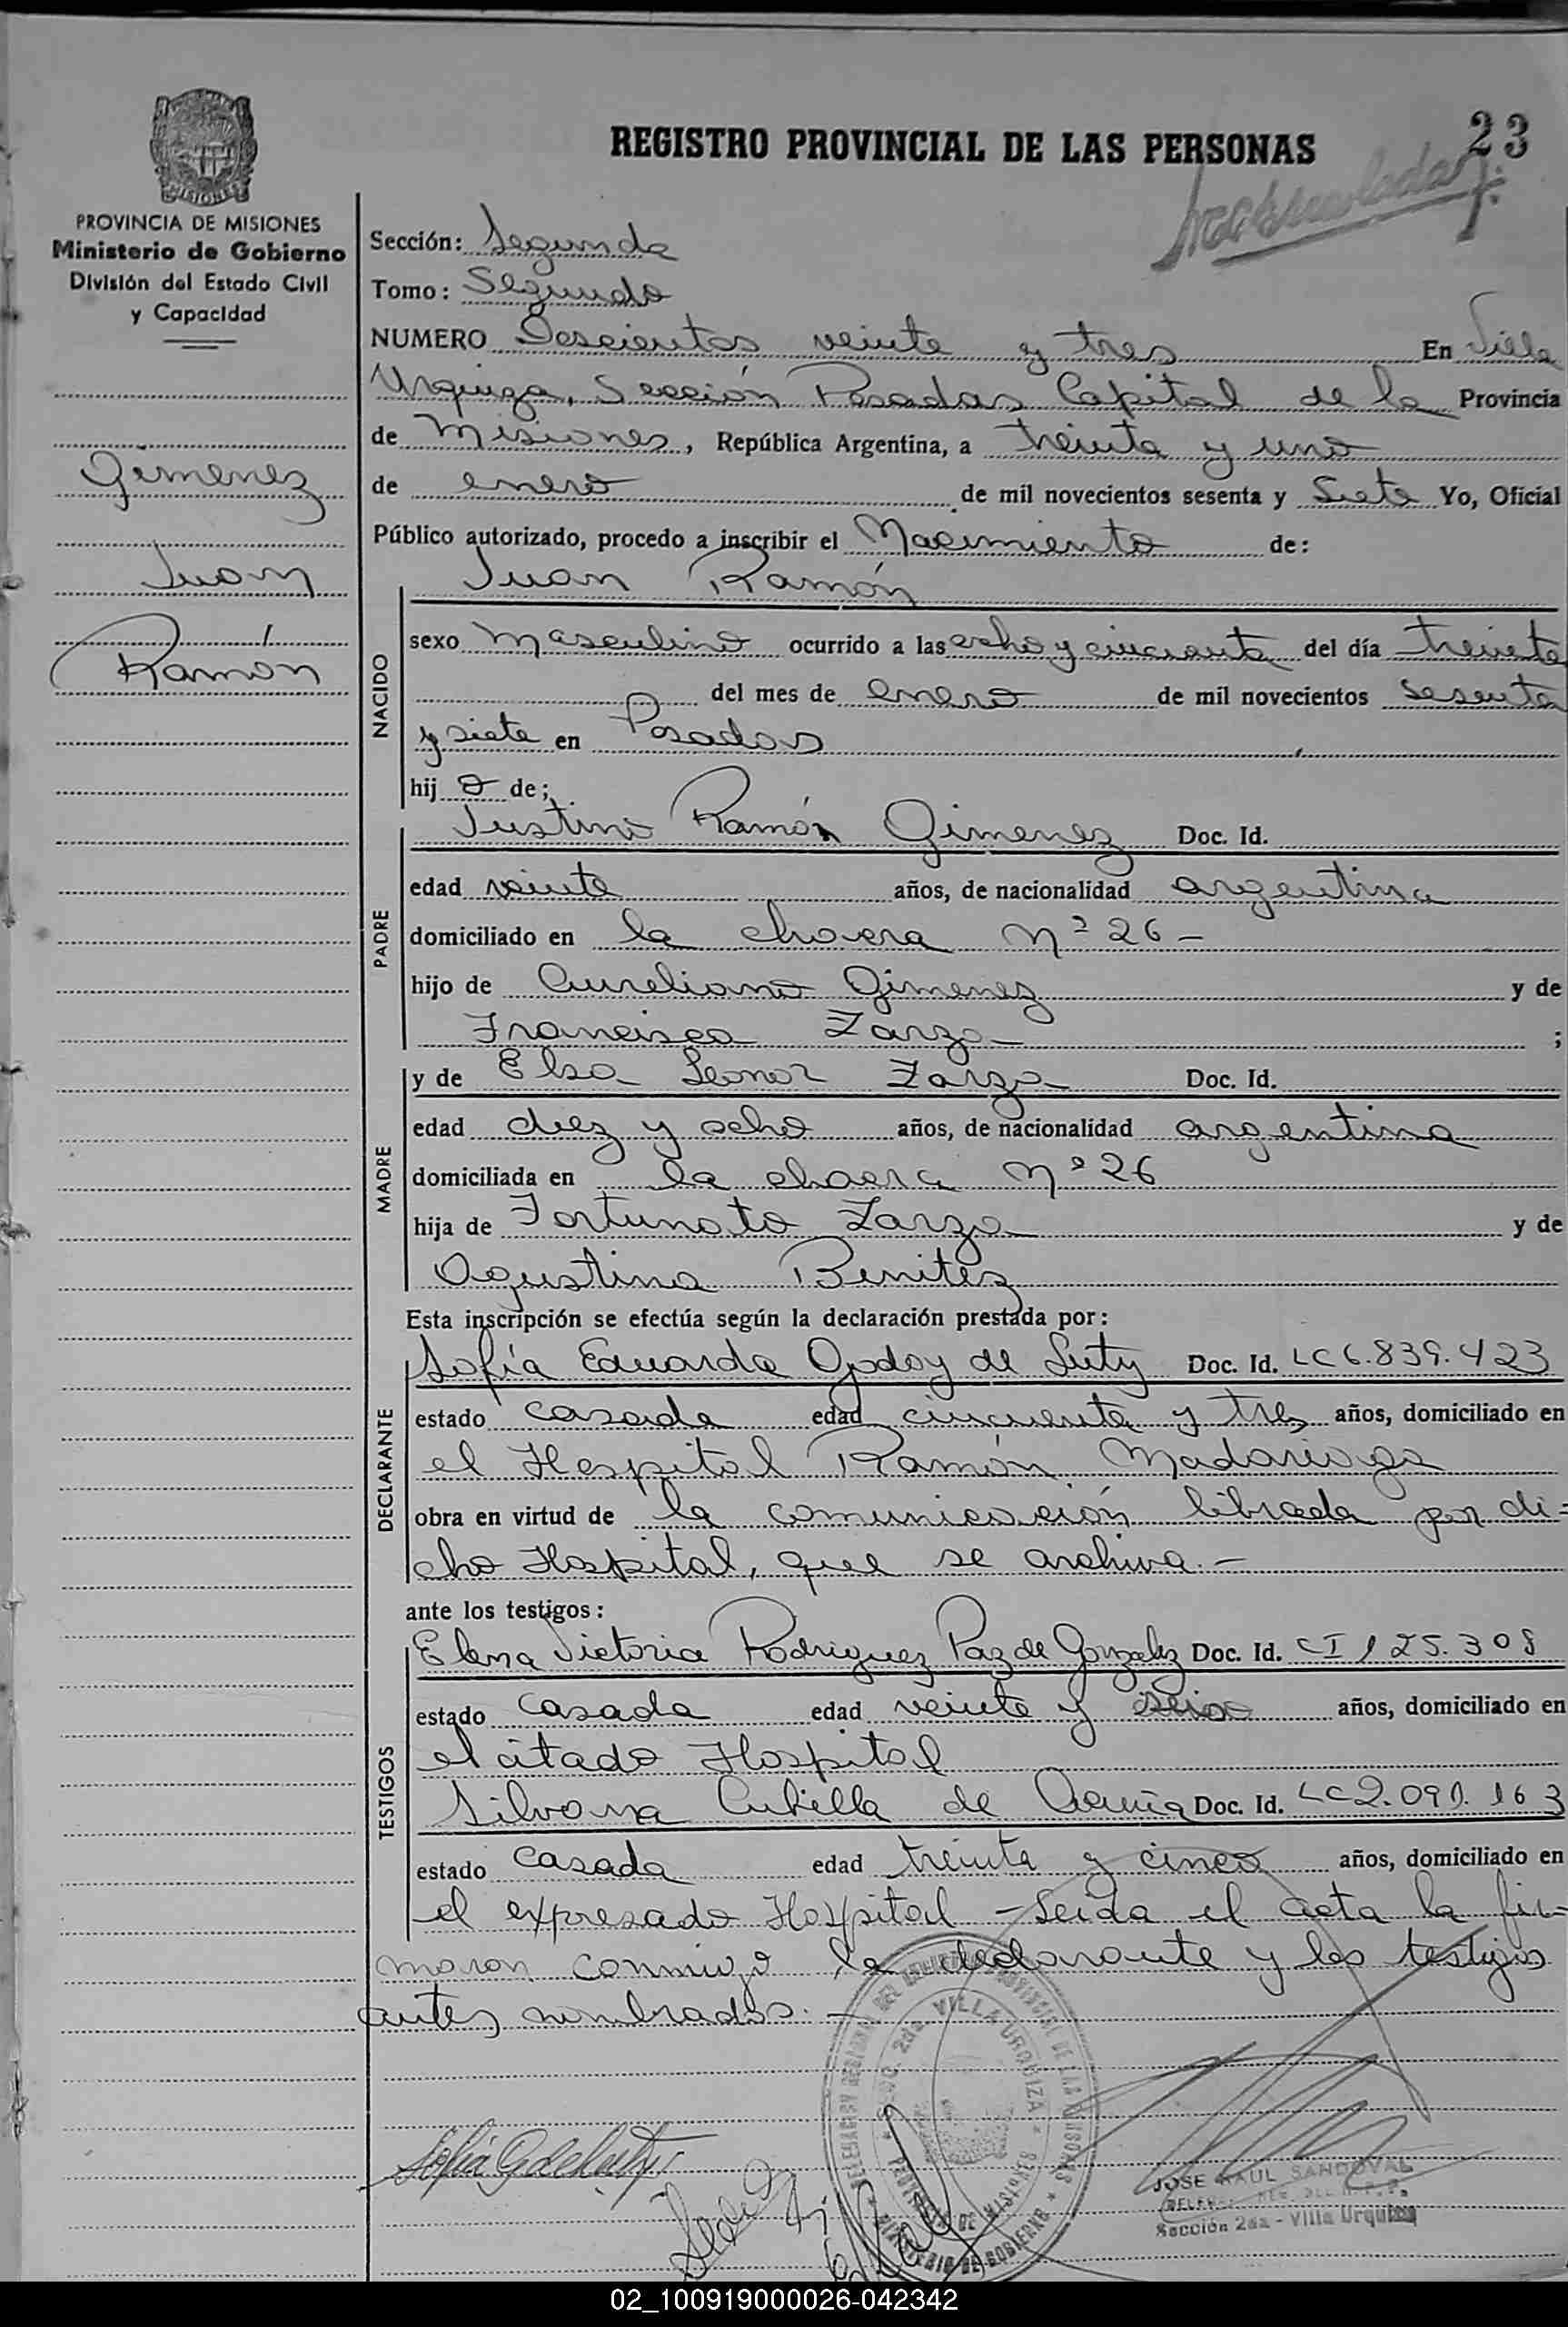 REGISTRO PROVINCIAL DE LAS PERSONAS
23
MISIONES
PROVINCIA DE MISIONES
Ministerio de Gobierno
División del Estado Civil
y Capacidad
Gimenez
Juan
Ramón
Sección: Segunda
Tomo: Segundo
NUMERO Doscientos veinte y tres En Villa
Urquiza, Sección Posadas Capital de la Provincia
de Misiones, República Argentina, a treinta y uno
de enero de mil novecientos sesenta y Siete Yo, Oficial
Público autorizado, procedo a inscribir el Nacimiento de:
Juan Ramón
NACIDO
sexo Masculino ocurrido a las ocho y cincuenta del día treinta
del mes de enero de mil novecientos sesenta
y siete en Posadas
hijo de;
Justino Ramón Gimenez Doc. Id.
PADRE
edad veinte años, de nacionalidad argentina
domiciliado en la chacra Nº 26 -
hijo de Aureliano Gimenez y de
Francisca Zarza ;
MADRE
y de Elsa Leonor Zarza Doc. Id.
edad diez y ocho años, de nacionalidad argentina
domiciliada en la chacra Nº 26
hija de Fortunato Zarza y de
Agustina Benitez
Esta inscripción se efectúa según la declaración prestada por:
DECLARANTE
Sofía Eduarda Godoy de Luty Doc. Id. LC 6.839.423
estado casada edad cincuenta y tres años, domiciliado en
el Hospital Ramón Madariaga
obra en virtud de la comunicación librada por di=
cho Hospital, que se archiva.-
ante los testigos:
TESTIGOS
Elena Victoria Rodriguez Paz de Gonzalez Doc. Id. CI 125.308
estado casada edad veinte y seis años, domiciliado en
el citado Hospital
Silvana Cubilla de Acuña Doc. Id. LC 2.091.163
estado casada edad treinta y cinco años, domiciliado en
el expresado Hospital - Leida el acta la fir-
maron conmigo la declarante y los testigos
antes nombrados.-
VILLA URQUIZA
MINISTERIO DE GOBIERNO
JOSE RAUL SANDOVAL
Sección 2da - Villa Urquiza
02_100919000026-042342